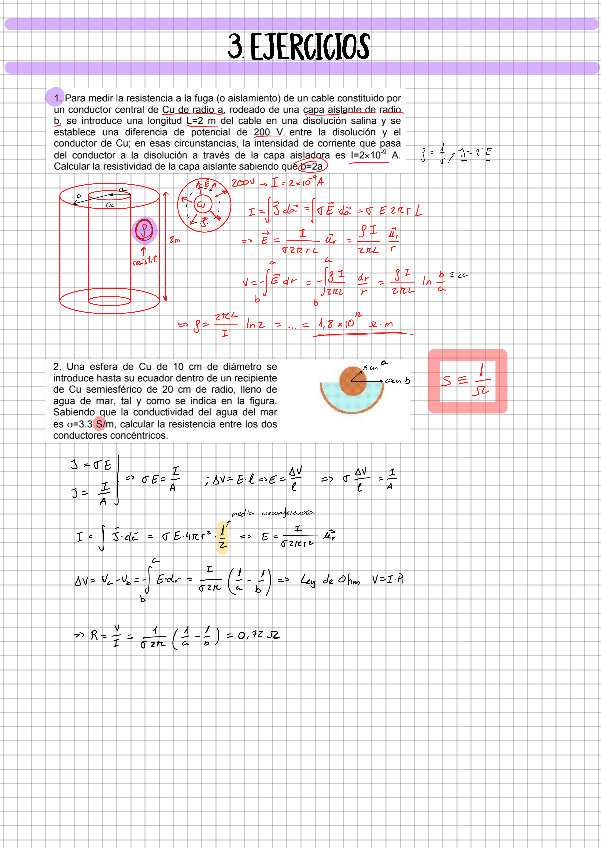 3. EJERCICIOS
1. Para medir la resistencia a la fuga (o aislamiento) de un cable constituido por
un conductor central de Cu de radio a, rodeado de una capa aislante de radio
b, se introduce una longitud L=2 m del cable en una disolución salina y se
establece una diferencia de potencial de 200 V entre la disolución y el
conductor de Cu; en esas circunstancias, la intensidad de corriente que pasa
del conductor a la disolución a través de la capa aisladora es I=2×10⁻⁹ A.
Calcular la resistividad de la capa aislante sabiendo que b=2a
200V → I = 2×10⁻⁹A
I = ∫ J⃗ da⃗ = ∫ σ E⃗ da⃗ = σ E 2πr L
⇒ E⃗ = I / σ2πrL u⃗r = ρI / 2πL u⃗r / r
V = -∫ E⃗ dr = -∫ ρI / 2πL dr / r = ρI / 2πL ln b/a = 2a
2m
Cu
⇒ ρ = 2πL / I ln 2 = ... = 1,8×10¹² Ω·m
2. Una esfera de Cu de 10 cm de diámetro se
introduce hasta su ecuador dentro de un recipiente
de Cu semiesférico de 20 cm de radio, lleno de
agua de mar, tal y como se indica en la figura.
Sabiendo que la conductividad del agua del mar
es σ=3.3 S/m, calcular la resistencia entre los dos
conductores concéntricos.
S ≡ 1/Ω
J = σE
J = I/A
⇒ σE = I/A ; ΔV = E·l ⇒ E = ΔV/l ⇒ σ ΔV/l = I/A
media circunferencia
I = ∫ J⃗·da⃗ = σE·4πr²·1/2 ⇒ E = I / σ2πr² u⃗r
ΔV = Va - Vb = -∫ E·dr = I / σ2π (1/a - 1/b) ⇒ Ley de Ohm V=I·R
⇒ R = V/I = 1 / σ2π (1/a - 1/b) = 0,72 Ω